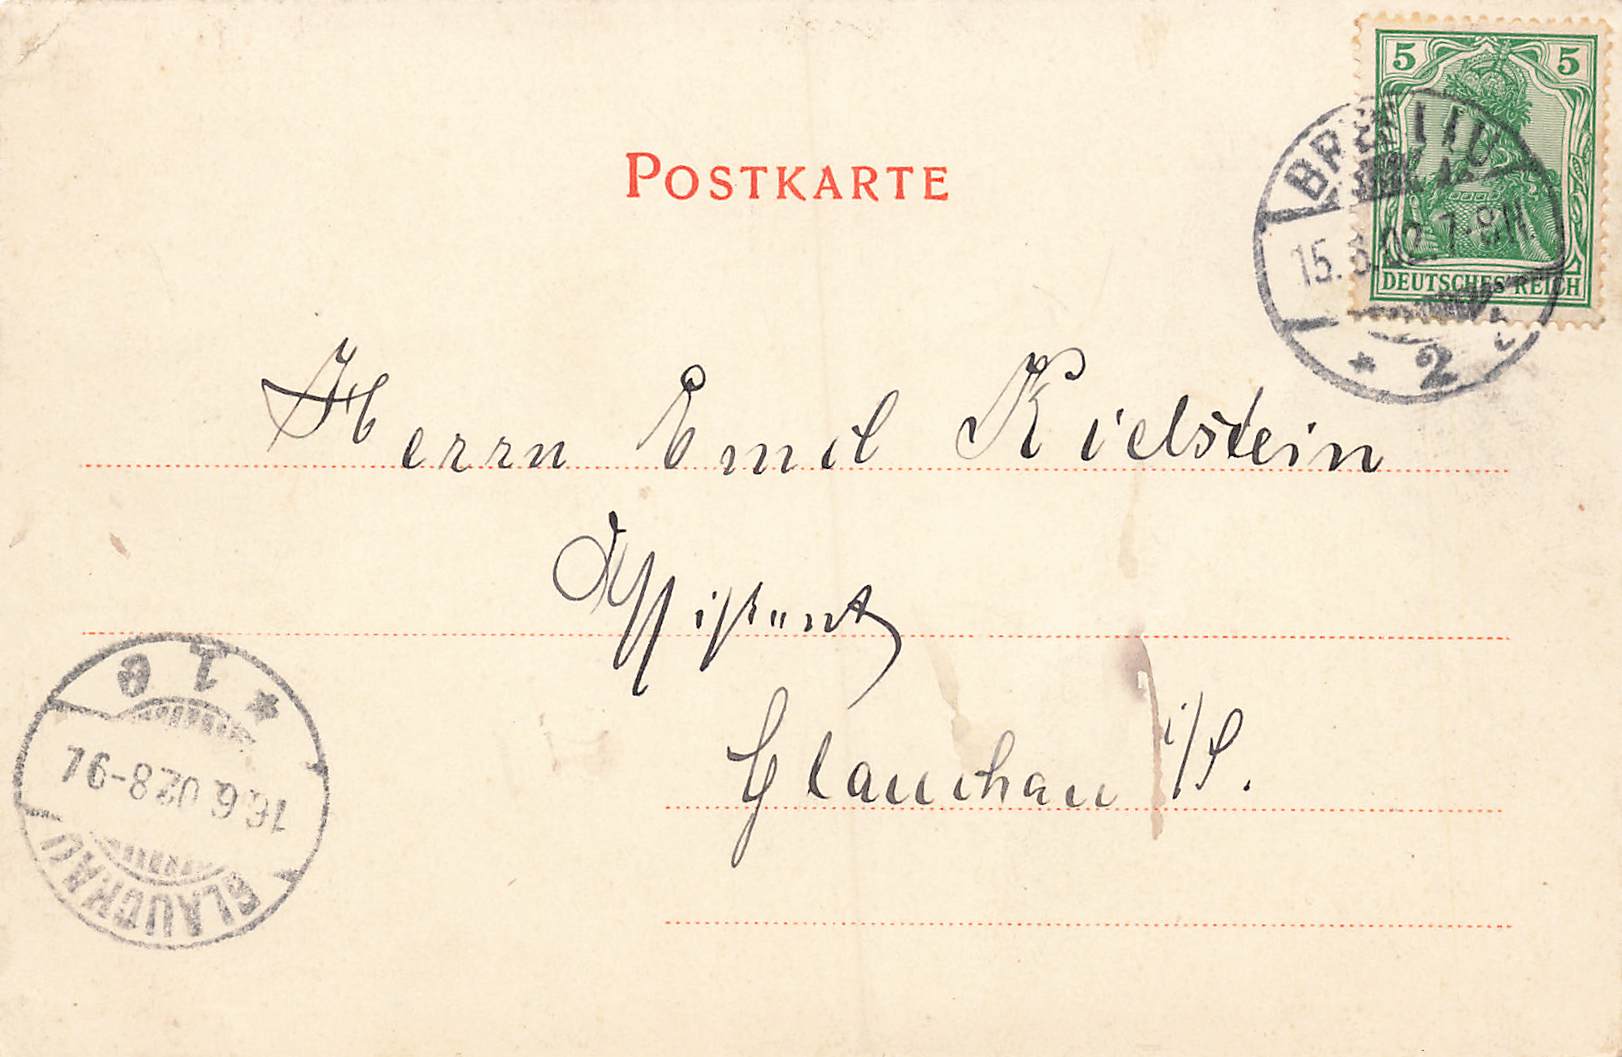 POSTKARTE
5 5
DEUTSCHES REICH
15. 02. 7-8 N.
* 2
Herrn Emil Kielstein
Assistent
Glauchau i/S.
* 1 e
16.6.02. 8-9
GLAUCHAU